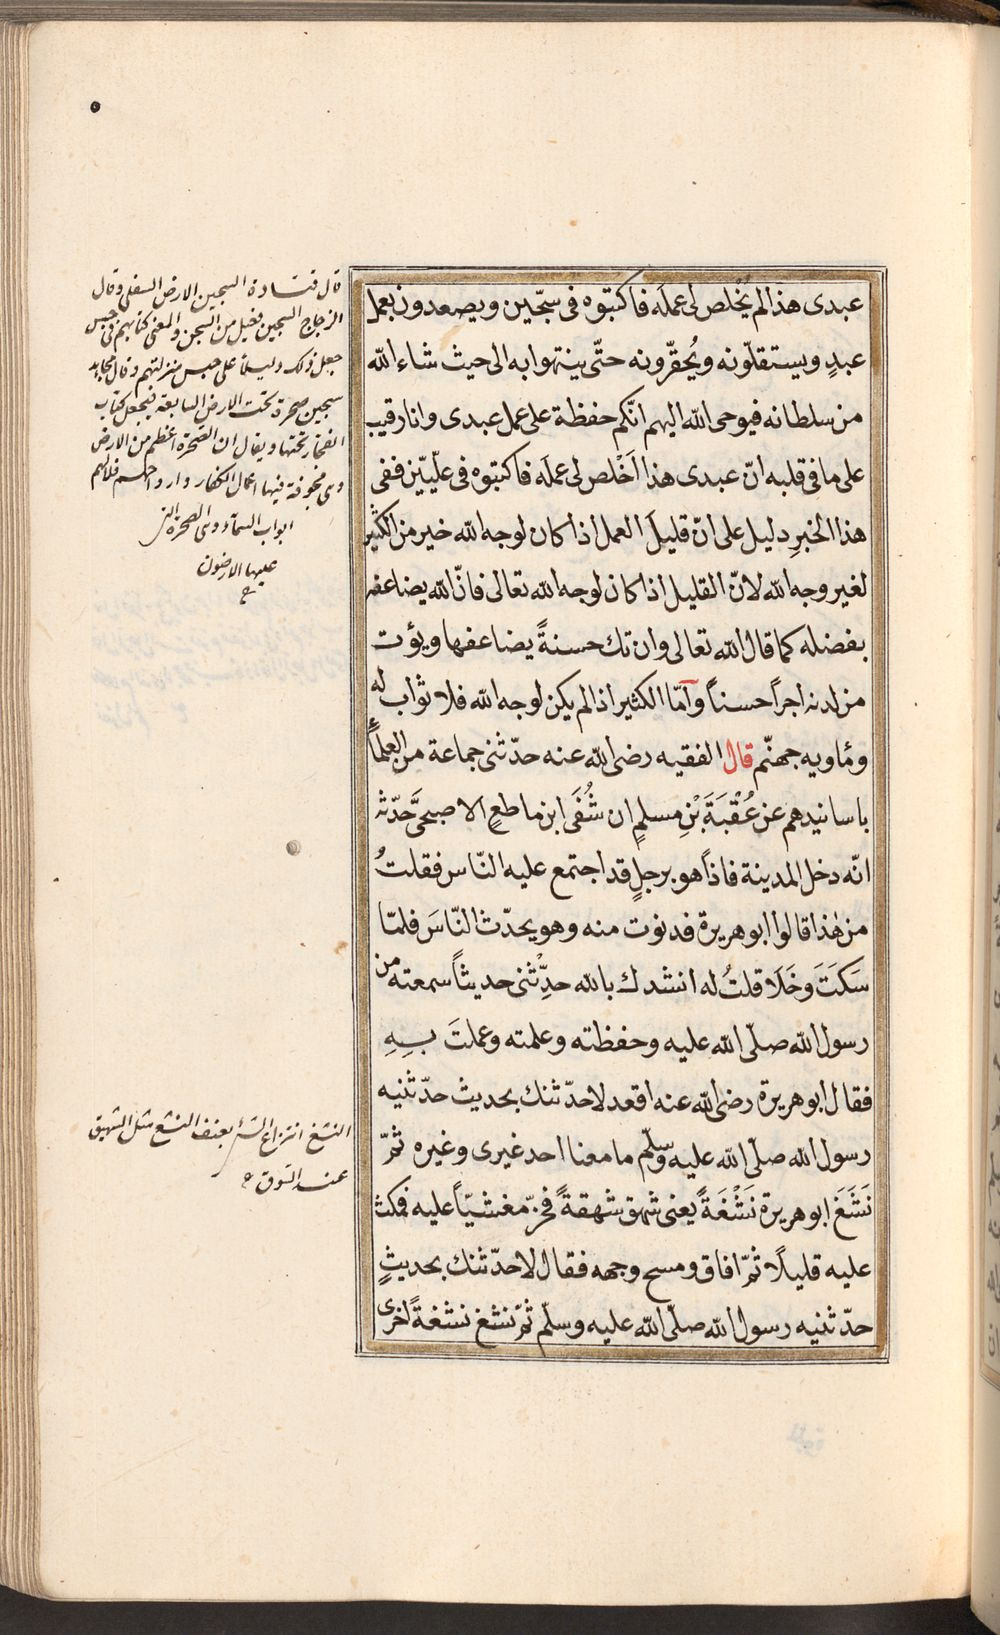 ٥
عبدى هذا لم يُخْلص لى عمَله فاكتبوه فى سجّين ويصعدون بعمل
عبدٍ ويستقلّونه ويُحقّرونه حتّى ينتهوا به الى حيث شاء الله
من سلطانه فيوحى الله اليهم انّكم حفظة على عمل عبدى وانا رقيب
على ما فى قلبه انّ عبدى هذا اَخْلص لى عملَه فاكتبوه فى علّيّين ففى
هذا الخبرِ دليل على انّ قليلَ العمل اذا كان لوجه الله خير من الكثير
لغير وجه الله لانّ القليل اذا كان لوجه الله تعالى فانّ الله يضاعفه
بفضله كما قال الله تعالى وان تك حسنةً يضاعفها ويؤت
من لدنه اجراً حسناً وأمّا الكثير اذا لم يكن لوجه الله فلا ثواب له
ومٔاويه جهنّم قال الفقيه رضى الله عنه حدّثنى جماعة من العلمأ
باسانيدهم عن عُقْبَةَ بْنِ مسلمٍ ان شُفَى ابن ماطعٍ الاصبحىَّ حَدّثه
انّه دخل المدينة فاذاً هو برجلٍ قد اجتمع عليه النّاس فقلتُ
من هٰذا قالوا ابو هريرة فدنوت منه وهو يحدّث النّاسَ فلمّا
سَكَتَ وخَلَا قلتُ له انشدك بالله حدِّثنى حديثاً سمعته من
رسول الله صلّى الله عليه وحفظته وعلمته وعملتَ بِهِ
فقال ابو هريرة رضى الله عنه اقعد لاحدّثنك بحديث حدّثنيه
رسول الله صلّى الله عليه وسلّم ما معنا احد غيرى وغيره ثمّ
نَشَغَ ابو هريرة نَشْغَةً يعنى شهق شهقةً فخرّ مغشيّاً عليه فمكث
عليه قليلًا ثمّ افاق ومسح وجهه فقال لاحدّثنك بحديثٍ
حدّثنيه رسول الله صلّى الله عليه وسلّم ثمّ نشغ نشغةً اخرى
قال قتادة السجين الارض السفلى وقال
الزجاج السجين فعيل من السجن والمعنى كتابهم فى حبس
جعل ذلك دليلاً على حبس منزلتهم وقال مجاهد
سجين صخرة تحت الارض السابعة فيجعل كتاب
الفجار تحتها ويقال ان الصخرة اعظم من الارض
وهى مجوفة فيها اعمال الكفار وارواحهم فلا لهم
ابواب السمآء وهى الصخرة التى
عليها الارضون
النشغ انتزاع الشئ بعنف النشغ مثل الشهيق
عند الشوق